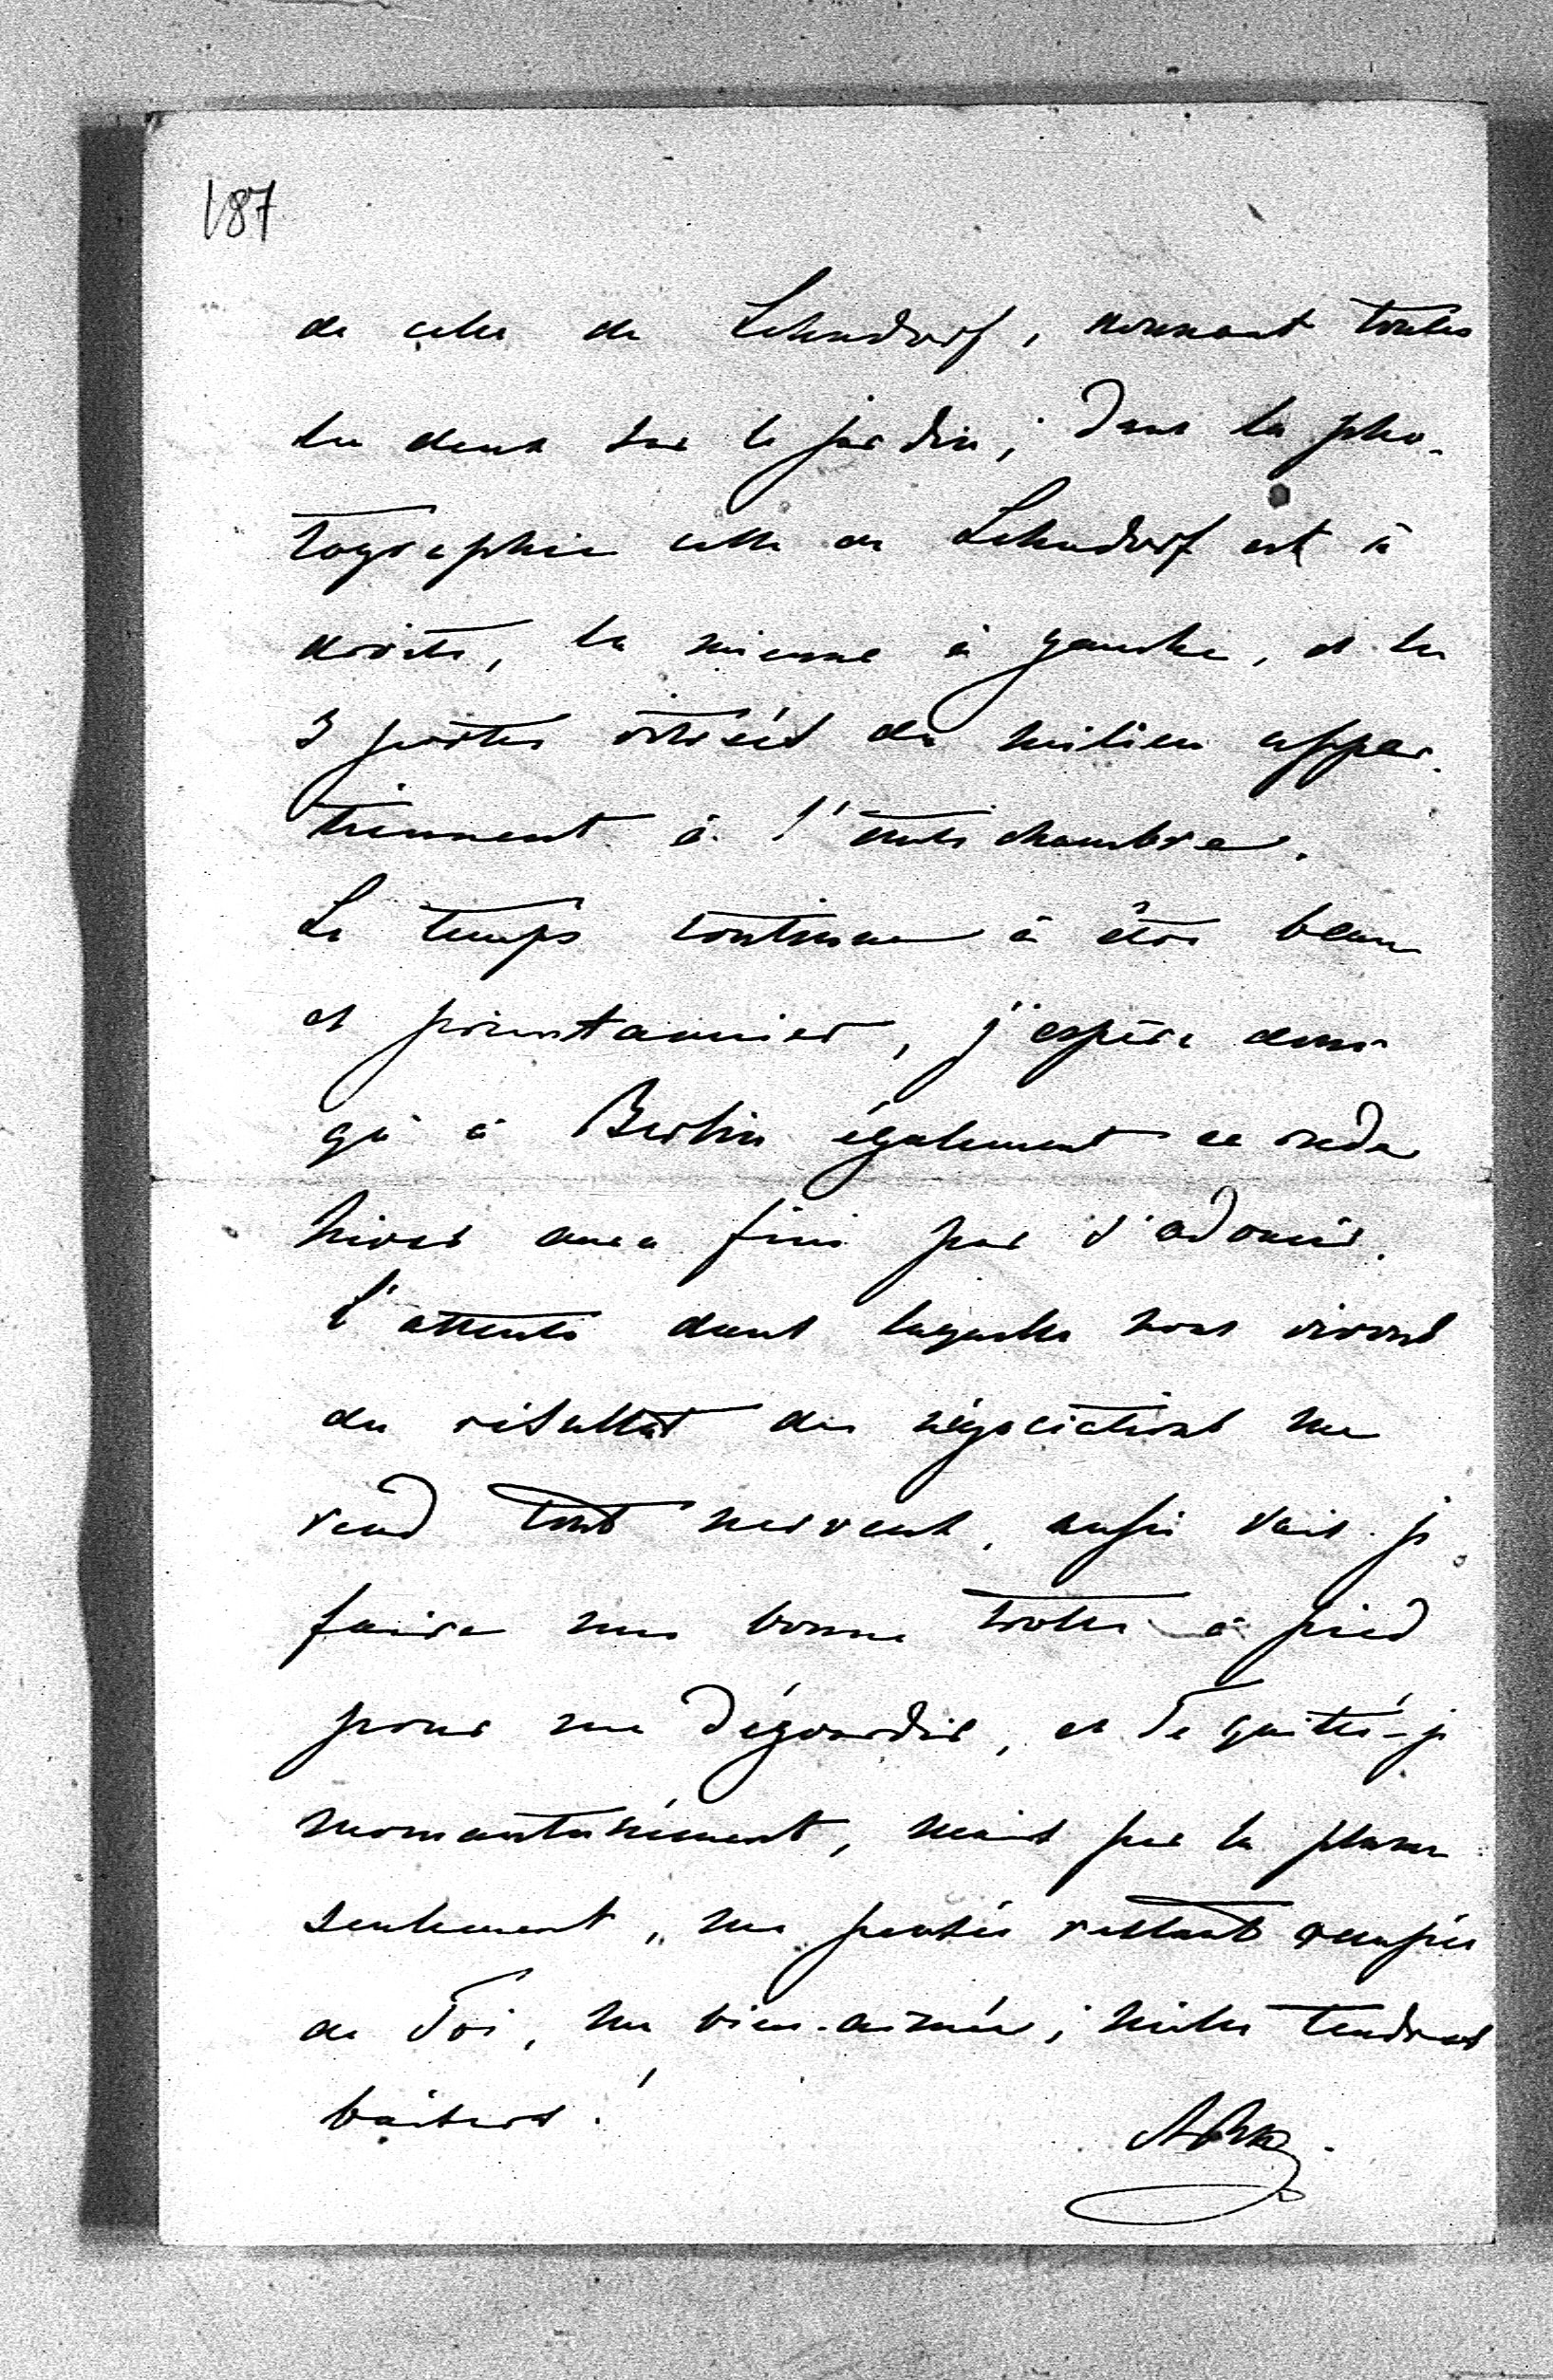 187
de celle de Lehndorf, donnant toutes
les deux sur le jardin; dans la pho-
tographie celle de Lehndorf est à
droite, la mienne à gauche, et les
3 portes vitrées du milieu appar-
tiennent à l'antichambre.
Le temps continue à être beau
et printannier, j'espère donc
qu'à Berlin également ce rude
hiver aura fini par s'adoucir.
L'attente dans laquelle nous vivons
du résultat des négociations me
rend tout nerveux, aussi vais-je
faire une bonne trotte à pied
pour me dégourdir, et Te quitté-je
momantanément, mais par la plume
seulement, ma pensée restant occupée
de Toi, ma bien-aimée; mille tendres
baisers!